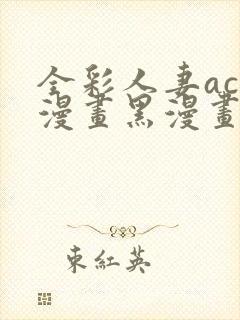 全彩人妻ac
漫畫黑漫畫
東紅英